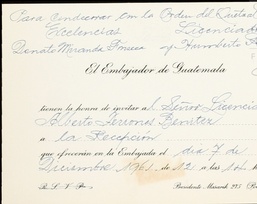 Para condecorar con la Orden del Quetzal
Excelencias Licenciado
Donato Miranda Fonseca y Humberto
El Embajador de Guatemala
tienen la honra de invitar al Señor Licenciado
Alberto Terrones Benítez
a la Recepción
que ofrecerán en la Embajada el día 7 de
Diciembre 1961 de 12 a 14 h
R. S. V. P.
Presidente Masarik 215